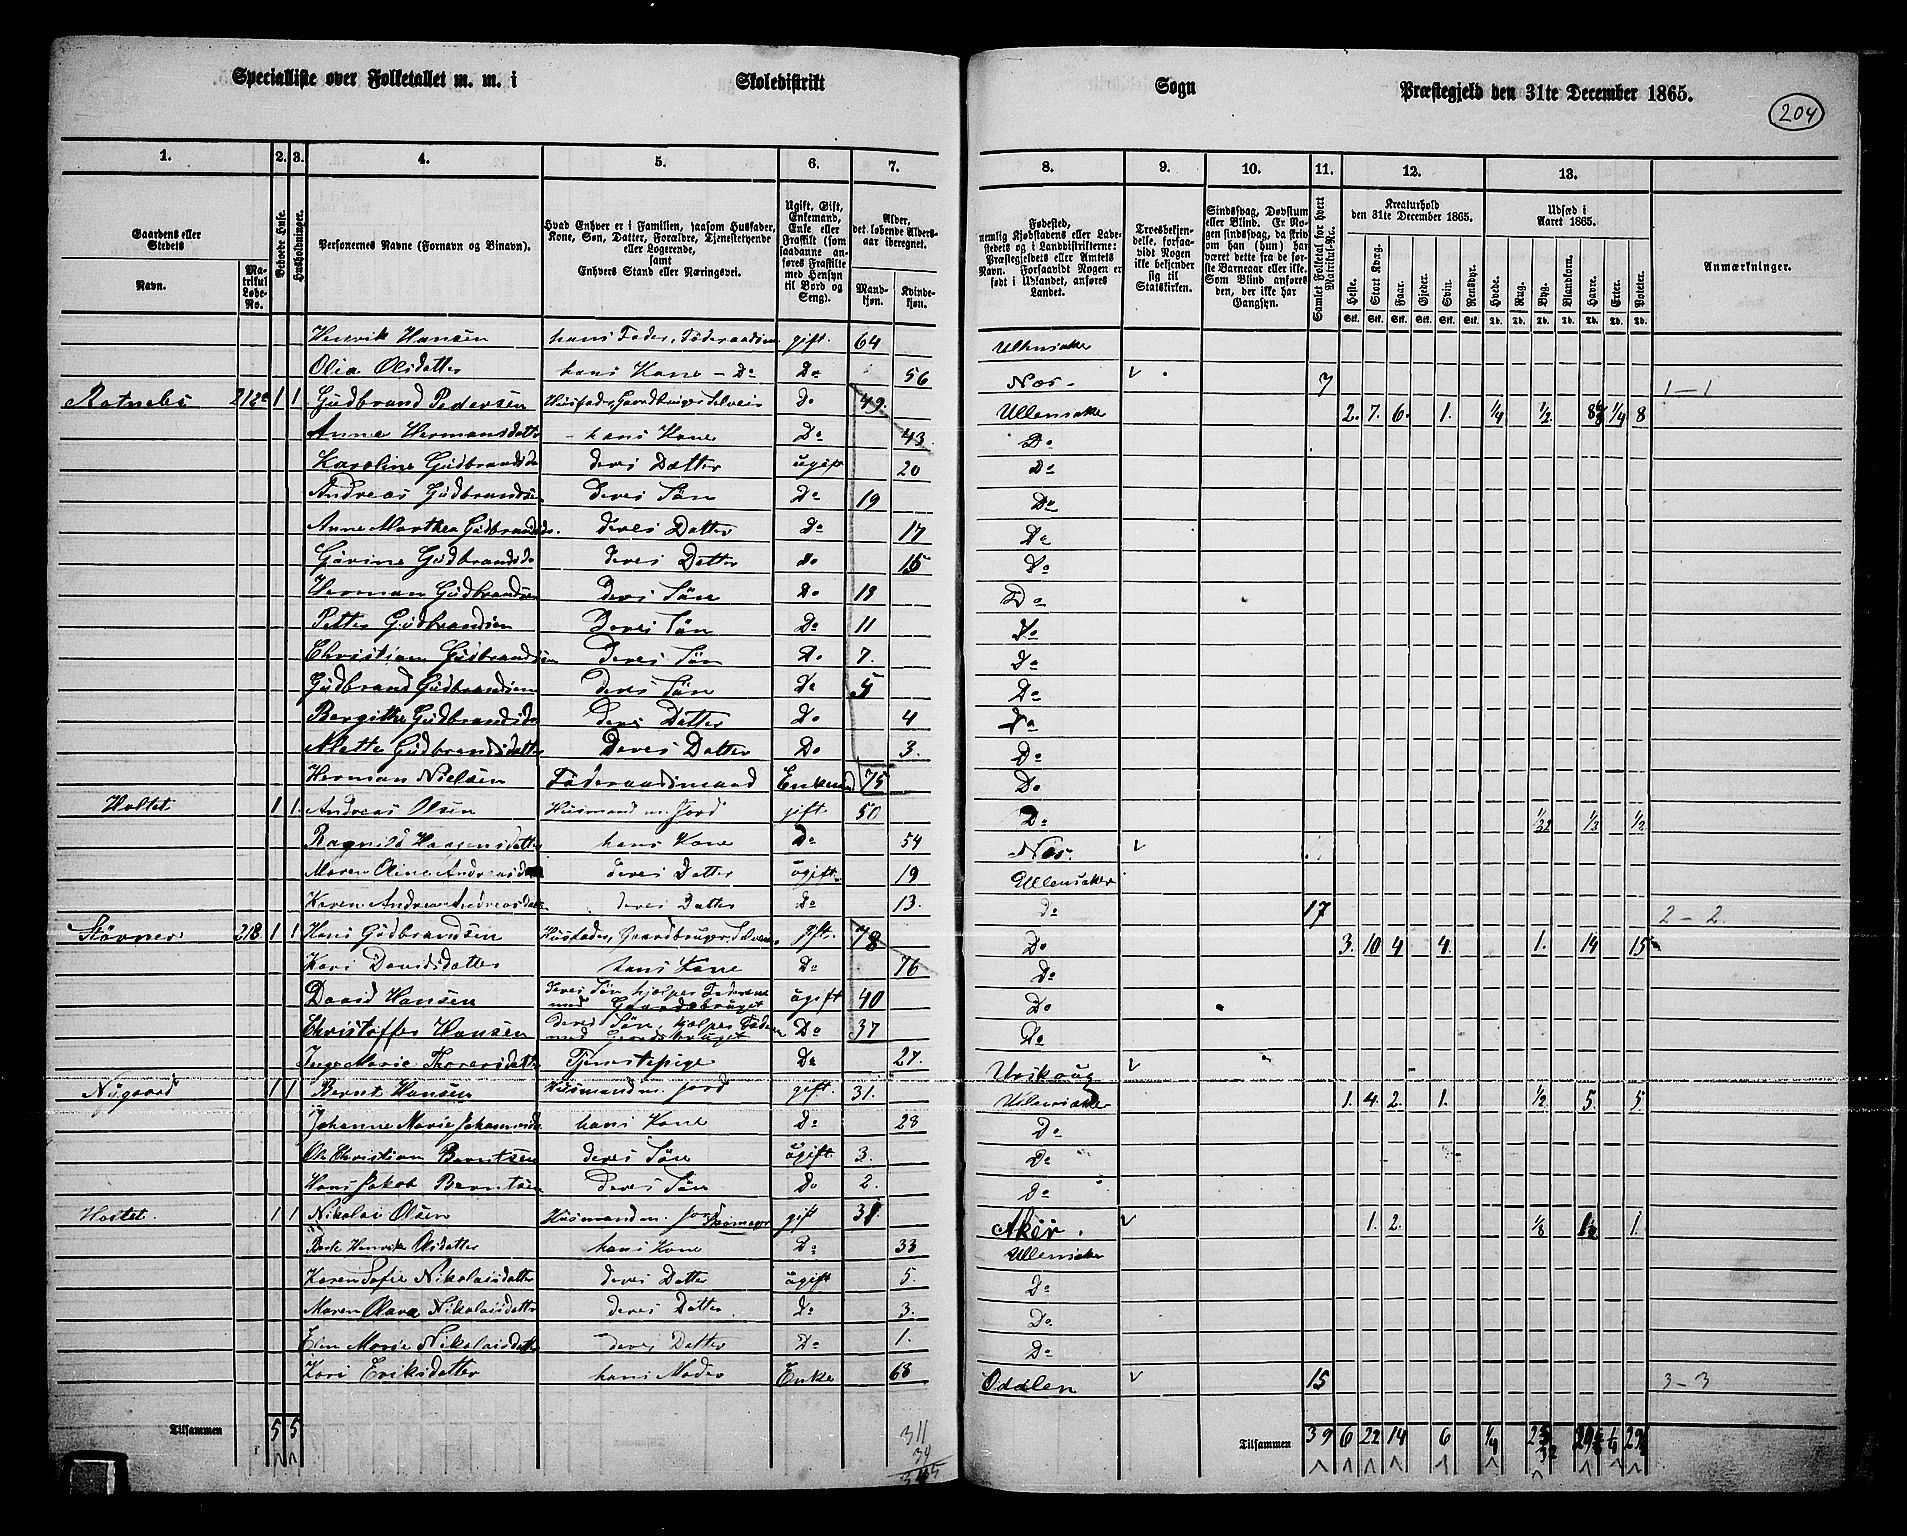 Specialliste over Folketallet m. m. i Skoledistrikt Sogn Præstegjeld den 31te December 1865.
204
1. 2. 3. 4. 5. 6. 7. 8. 9. 10. 11. 12. 13.
Gaardens eller Stedets
Navn.
Matrikul Løbe-No.
Beboede Huse.
Husholdninger.
Personernes Navne (Fornavn og Binavn).
Hvad Enhver er i Familien, saasom Husfader, Kone, Søn, Datter, Forældre, Tjenestetyende eller Logerende, samt Enhvers Stand eller Næringsvei.
Ugift, Gift, Enkemand, Enke eller Fraskilt (som saadanne anføres Fraskilte med Hensyn til Bord og Seng).
Alder, det løbende Aldersaar iberegnet.
Mandkjøn.
Kvindekjøn.
Fødested, nemlig Kjøbstadens eller Ladestedets og i Landdistrikterne: Præstegjeldets eller Amtets Navn. Forsaavidt Nogen er født i Udlandet, anføres Landet.
Troesbekjendelse, forsaavidt Nogen ikke bekjender sig til Statskirken.
Sindssvag, Døvstum eller Blind. Er Nogen sindssvag, da skrives om han (hun) har været dette fra de første Barneaar eller ikke. Som Blind anføres den, der ikke har Gangsyn.
Samlet Folketal for hvert Matrikul-Nr.
Kreaturhold den 31te December 1865.
Heste. Stort Kvæg. Faar. Gjeder. Svin. Rensdyr.
Udsæd i Aaret 1865.
Hvede. Rug. Byg. Blandkorn. Havre. Erter. Poteter.
Anmærkninger.
Henrik Hansen hans Fader, Föderaadsm gift. 64 Ullensaker
Olia Olsdatter hans Kone - Do Do 56 Næs - 7 1 - 1
1 1 Gudbrand Pedersen Husfader, Gaardbruger Selveier do 49. Ullensaker 2. 7. 6. 1. 1/4 1/2 1/4 8
Anne Hermansdatter hans Kone Do 43. Do
Karoline Gudbrandsd deres Datter ugift 20 Do
Andreas Gudbrandsen deres Søn Do 19 Do
Anne Marthea Gudbrandsd. deres Datter Do 17 Do
Gurine Gudbrandsd deres Datter Do 15 Do
Herman Gudbrandsen deres Søn Do 13 Do
Petter Gudbrandsen Deres Søn Do 11 Do
Christian Gudbrandsen Deres Søn Do 7. Do
Gudbrand Gudbrandsen deres Søn Do 5 Do
Bergitte Gudbrandsd deres Datter Do 4 Do
Mette Gudbrandsdatter Deres Datter Do 3. Do
Herman Nielsen Föderaadsmand Enkemand 75 Do
Holtet 1 1. Andreas Olsen Husmand m Jord gift 50 Do 1/32 1/2 1/2
Ragnild Haagensdatter hans Kone Do 54 Næs.
Maren Oline Andreasdatter deres Datter ugift 19 Ullensaker
Karen Andrea Andreasdatter deres Datter Do 13. Do 17 2 - 2.
Stövner 218 1 1 Hans Gudbrandsen Husfader, Gaardbruger, Selveier gift. 78 Do 3. 10 4 4. 1. 14 15
Kari Davidsdatter hans Kone Do 76 Do
David Hansen deres Søn hjelper Faderen med Gaardsbruget ugift 40 Do
Christoffer Hansen deres Søn, hjelper Faderen med Gaardsbruget Do 37 Do
Inge Marie Thoresdatter Tjenestepige Do 27. Urskoug
Nygaard 1 1 Bernt Hansen Husmand m Jord gift. 31. Ullensaker 1. 4 2. 1. 1/2 5. 5.
Johanne Marie Johannesd hans Kone Do 28 Do
Ole Christian Berntsen deres Søn ugift. 3. Do
Hans Jakob Berntsen deres Søn Do 2. Do
1 1 Nikolai Olsen Husmand m. Jord Skomager gift 31 Aker. 1. 2. 1/8 1.
Berte Henrike Olsdatter hans Kone Do 33 Ullensaker
Karen Sofie Nikolaisdatter deres Datter ugift 5. Do
Maren Olava Nikolaisdatter deres Datter Do 3. Do
Elen Marie Nikolaisdatter deres Datter Do 1. Do
Kari Eriksdatter hans Moder Enke 68 Oddlen 15 3 - 3
Tilsammen 5 5
311
34
345
Tilsammen 39 6 22 14 6 1/4